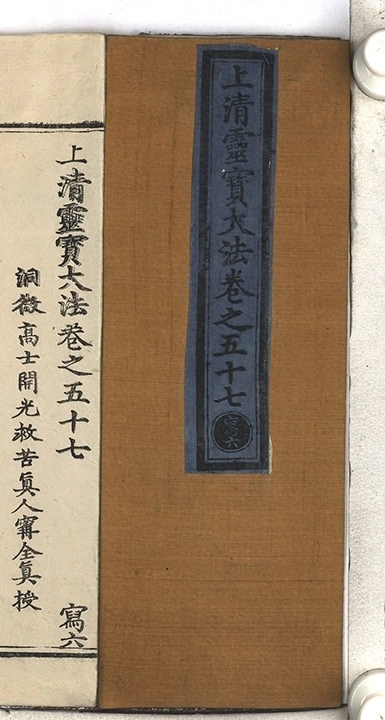 上清靈寶大法卷之五十七
寫六
上清靈寶大法卷之五十七
寫六
洞微高士開光救苦真人甯全真授